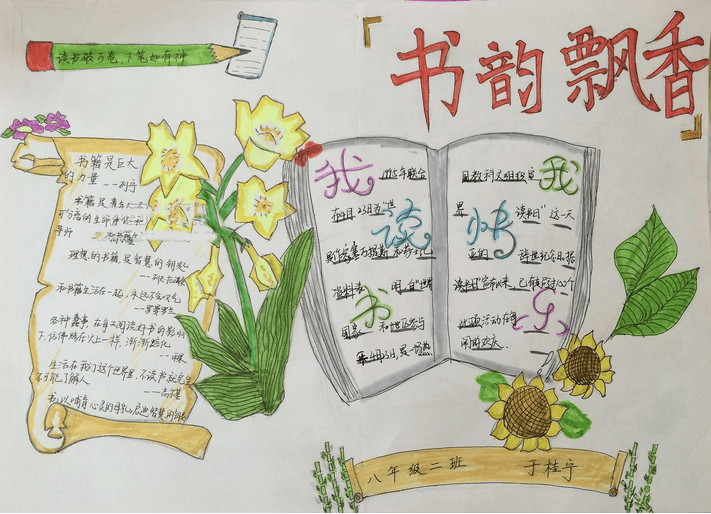 读书破万卷 下笔如有神
书韵飘香
书籍是巨大
的力量 ——列宁
书籍是青年人不
可分离的生命伴侣和
导师
理想的书籍是智慧的钥匙
和书籍生活在一起,永远不会叹气
——罗曼罗兰
各种蠢事,在每天阅读好书的影响
下,仿佛烤在火上一样,渐渐熔化
——雨果
生活在我们这个世界里,不读书就完全
不可能了解人
——高尔基
我 1995年联合
国教科文组织
我
在4月23日为“世
读
界
快
读书日”这一天
书
乐
读书日”宣布以来,已有超过100个
国家 和地区参与
此项活动在每
年4月23日,是一场热
闹的欢庆.
八年级二班 于桂宁